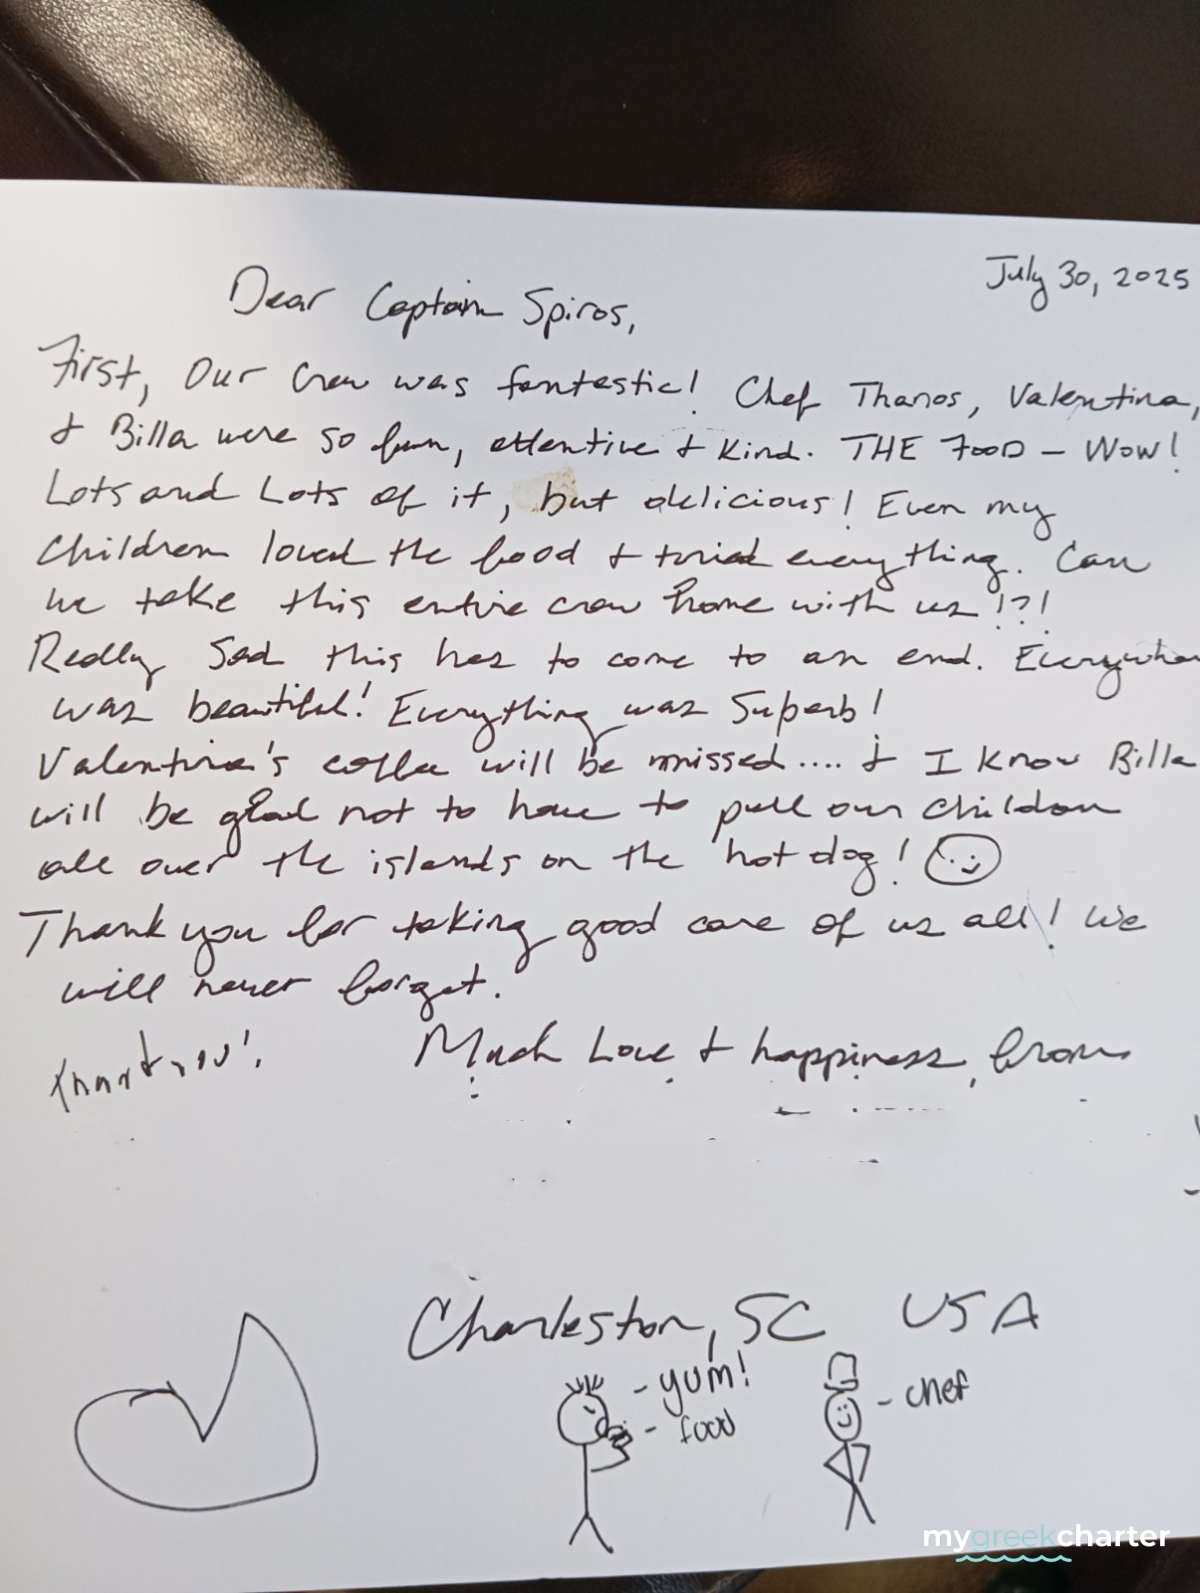 July 30, 2025
Dear Captain Spiros,
First, Our Crew was fantastic! Chef Thanos, Valentina,
& Billa were so fun, attentive & kind. THE FOOD - WOW!
Lots and Lots of it, but delicious! Even my
children loved the food & tried everything. Can
we take this entire crew home with us!?!
Really sad this has to come to an end. Everywhere
was beautiful! Everything was Superb!
Valentina's coffee will be missed.... & I know Billa
will be glad not to have to pull our children
all over the islands on the hot dog!
Thank you for taking good care of us all! We
will never forget.
Thank you!
Much Love & happiness, from
Charleston, SC USA
- yum!
- food
- chef
mygreekcharter